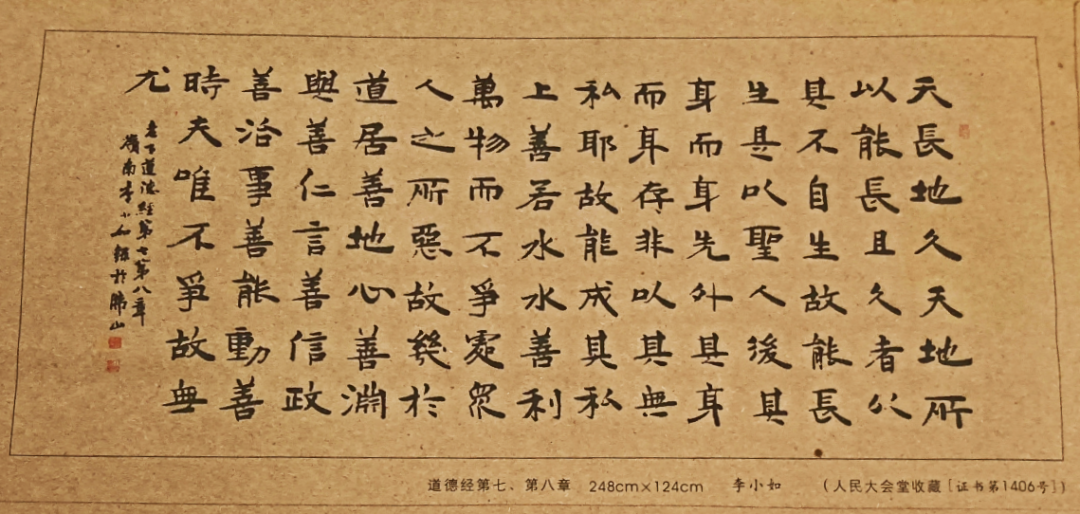 天長地久天地所
以能長且久者以
其不自生故能長
生是以聖人後其
身而身先外其身
而身存非以其無
私耶故能成其私
上善若水水善利
萬物而不爭處眾
人之所惡故幾於
道居善地心善淵
與善仁言善信政
善治事善能動善
時夫唯不爭故無
尤
老子道德經第七第八章
嶺南李小如錄於山
道德经第七、第八章 248cm×124cm 李小如 （人民大会堂收藏［证书第1406号］）